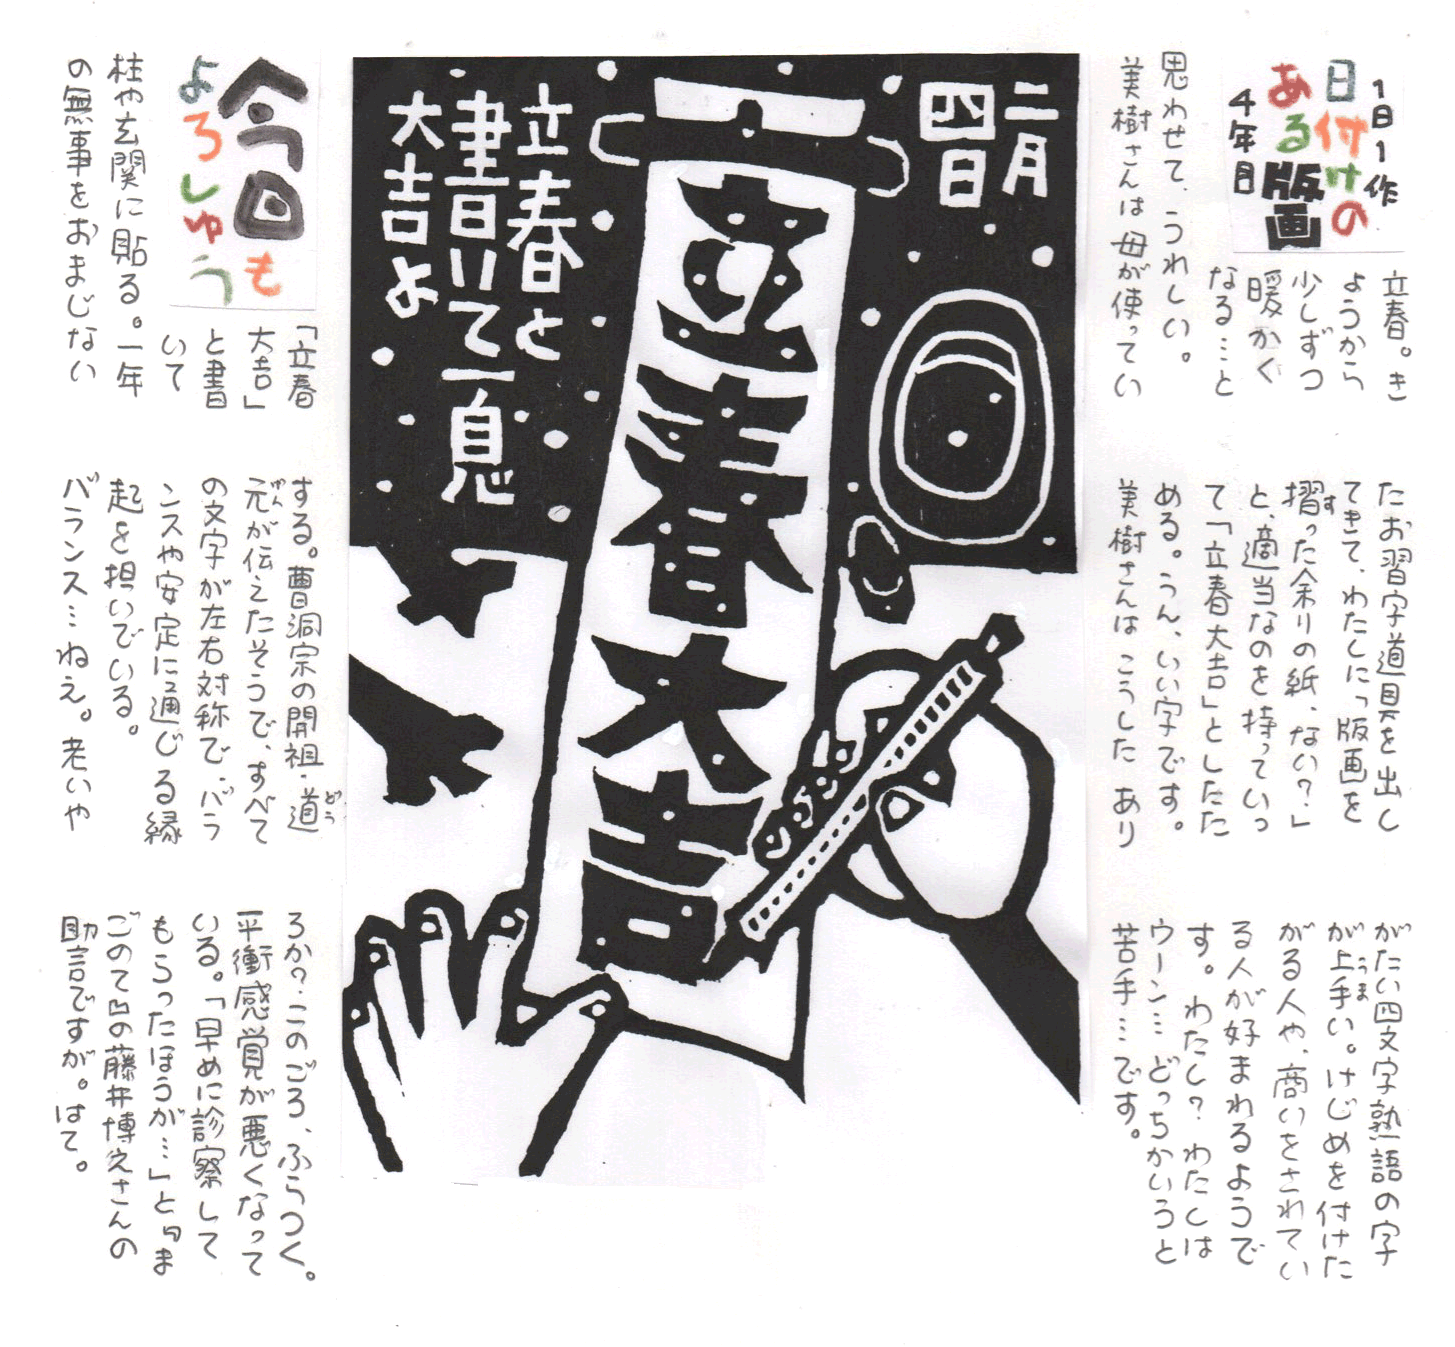 1日1作
日付けの
ある版画
4年目
立春。き
ようから
少しずつ
暖かく
なる…と
思わせて、うれしい。
美樹さんは母が使ってい
たお習字道具を出し
てきて、わたしに「版画を
摺った余りの紙、ない?」
と、適当なのを持っていっ
て「立春大吉」としたた
める。うん、いい字です。
美樹さんは こうした あり
がたい四文字熟語の字
が上手い。けじめを付けた
がる人や、商いをされてい
る人が好まれるようで
す。わたし? わたしは
ウーン… どっちかいうと
苦手…です。
二月
四日
立春大吉
立春と
書いて一息
大吉よ
今回も
よろしゅう
「立春
大吉」
と書
いて
柱や玄関に貼る。一年
の無事をおまじない
する。曹洞宗の開祖・道
元が伝えたそうで、すべて
の文字が左右対称で、バラ
ンスや安定に通じる縁
起を担いでいる。
バランス… ねえ。老いや
ろか? このごろ、ふらつく。
平衡感覚が悪くなって
いる。「早めに診察して
もらったほうが…」と『ま
ごのて』の藤井博之さんの
助言ですが。はて。